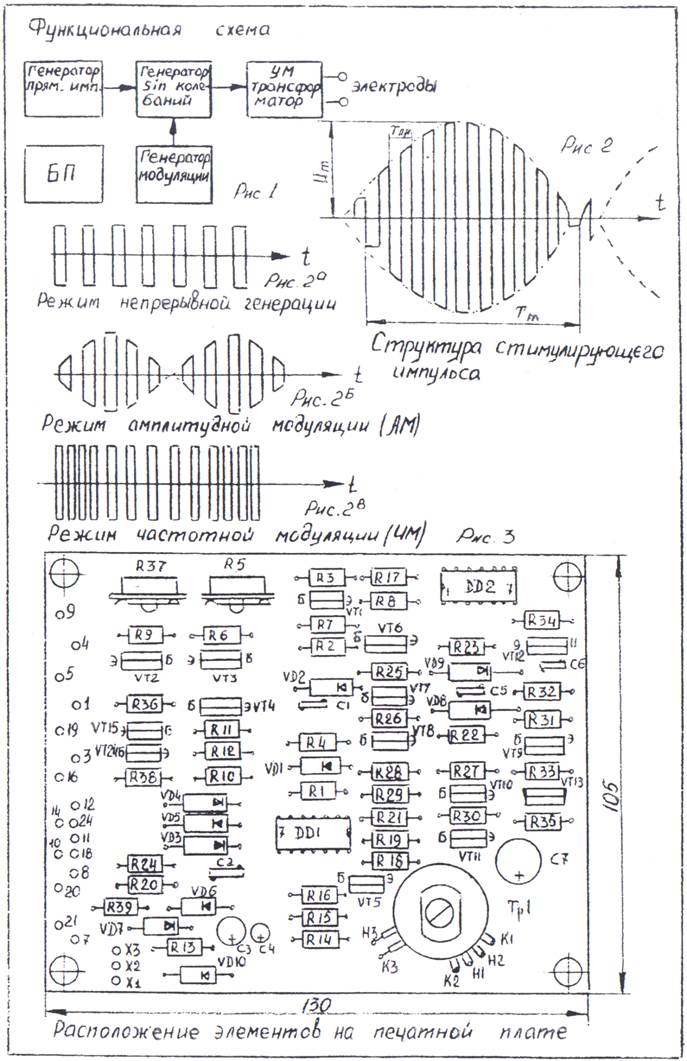 Функциональная схема
Генератор
прям. имп.
Генератор
sin коле-
баний
УМ
трансфор
матор
электроды
БП
Генератор
модуляции
Рис 1
Um
Tпи
Рис 2
t
Tm
Структура стимулирующего
импульса
t
Рис. 2а
Режим непрерывной генерации
t
Рис. 2Б
Режим амплитудной модуляции (АМ)
t
Рис. 2В
Режим частотной модуляции (ЧМ)
Рис. 3
R37 R5 R3 R17 DD2
1 7
9
Б Э VT1
R8
R34
4
R9 R6 R7 R2
Б VT6 Э
R23 VT12 Э
C6
Э Б Э Б
VT2 VT3
5
VD2 R25 VD9
C1 Б VT7 Э C5 R32
1
R36 Б Э VT4
R26 VD8 R31
19
VT15 Э Б R11
R4 Б Э VT8 R22 Б Э VT9
3
VT24 Б Э R12
VD1 R28 R27 R33
16
R38 R10
R1 R29 Б Э VT10 VT13
14 12
VD4
R21 R30 R35
24
VD5 7 DD1
11
10 18
VD3
R19 Б Э VT11
R18
C7
8
R24 C2
20
R20 VD6
Б Э VT5
R16
Tp1
R39
21
VD7 C3 C4
R15
7
R13 R14
X3
X2
X1
VD10
Н3
К3
К2
Н1
Н2
К1
105
130
Расположение элементов на печатной плате